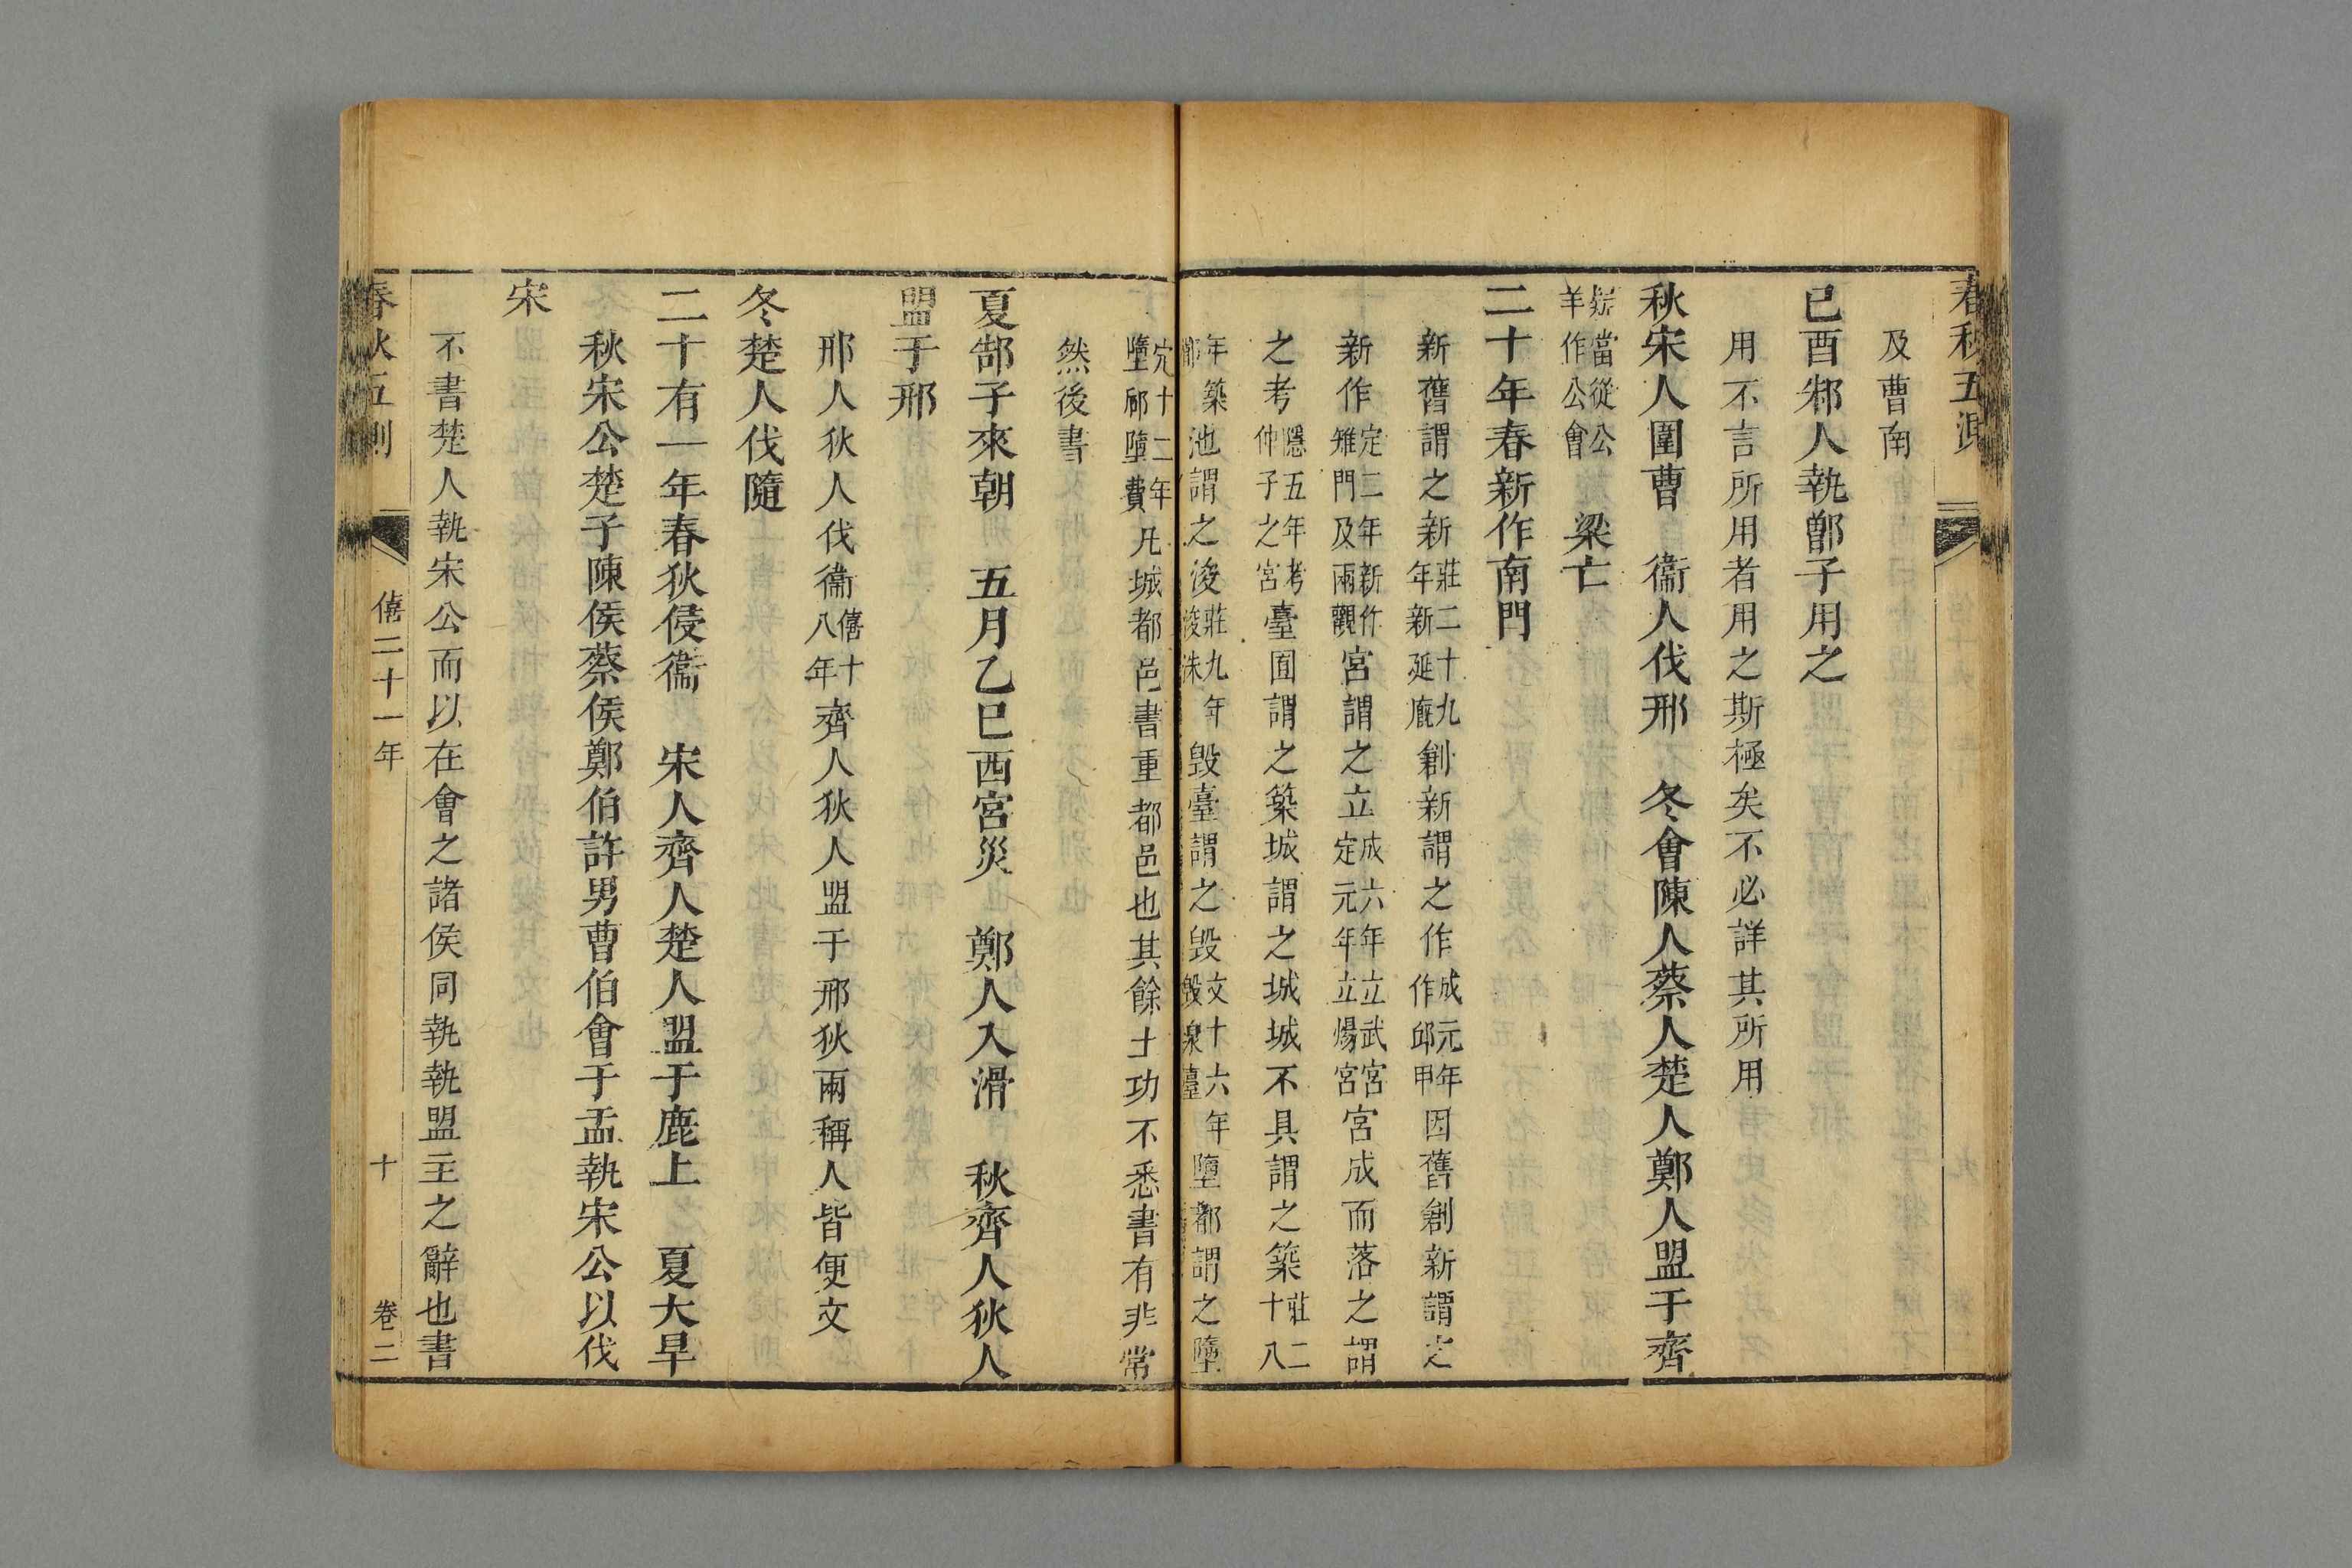 春秋五測
及曹南
已酉邾人執鄫子用之
用不言所用者用之斯極矣不必詳其所用
秋宋人圍曹　衞人伐邢　冬會陳人蔡人楚人鄭人盟于齊
當從公
羊作公會
梁亡
二十年春新作南門
新舊謂之新莊二十九年新延廐創新謂之作成元年作邱甲因舊創新謂之
新作定二年新作雉門及兩觀宮謂之立成六年立武宮定元年立煬宮宮成而落之謂
之考隱五年考仲子之宮臺囿謂之築城謂之城城不具謂之築莊二十八
年築郿池謂之浚莊九年浚洙毁臺謂之毁文十六年毁泉臺墮都謂之墮
定十二年墮郈墮費凡城都邑書重都邑也其餘土功不悉書有非常
然後書
夏郜子來朝　五月乙巳西宮災　鄭人入滑　秋齊人狄人
盟于邢
邢人狄人伐衞僖十八年齊人狄人盟于邢狄兩稱人皆便文
冬楚人伐隨
二十有一年春狄侵衞　宋人齊人楚人盟于鹿上　夏大旱
秋宋公楚子陳侯蔡侯鄭伯許男曹伯會于盂執宋公以伐
宋
不書楚人執宋公而以在會之諸侯同執執盟主之辭也書
春秋五測
僖二十一年
十
卷二